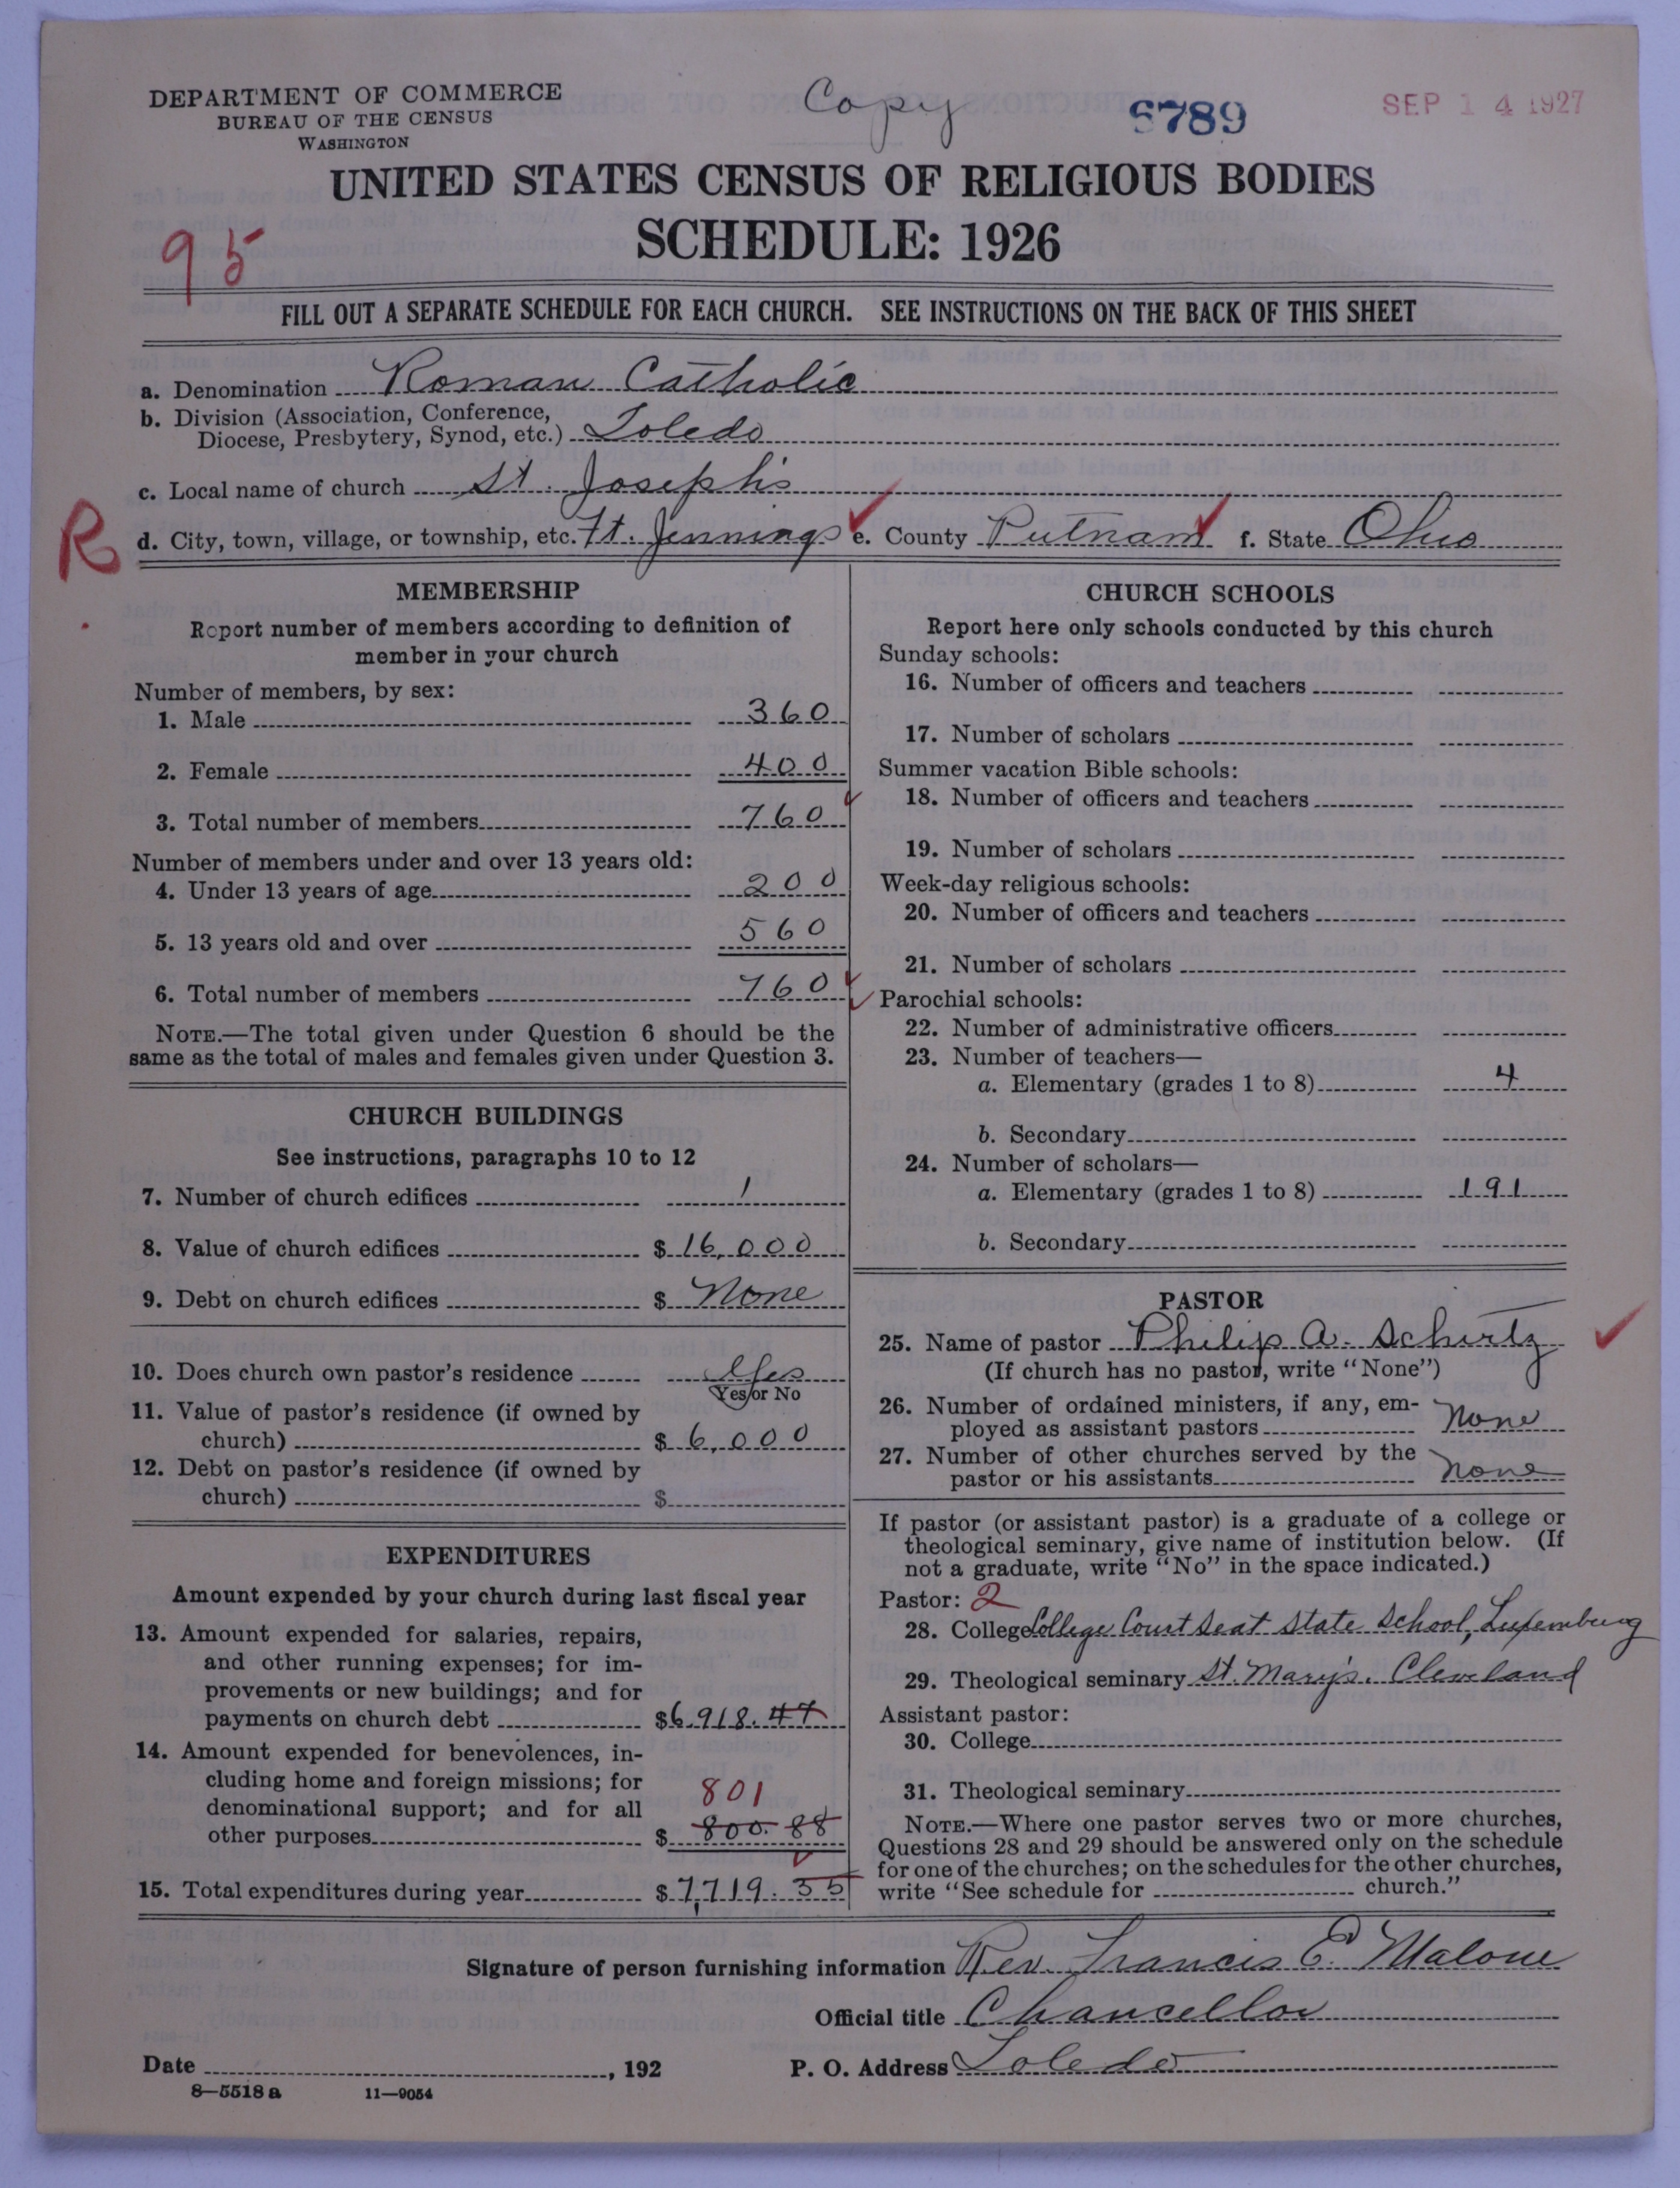 DEPARTMENT OF COMMERCE
BUREAU OF THE CENSUS
WASHINGTON
Copy
6789
SEP 14 1927
UNITED STATES CENSUS OF RELIGIOUS BODIES
SCHEDULE: 1926
95
FILL OUT A SEPARATE SCHEDULE FOR EACH CHURCH. SEE INSTRUCTIONS ON THE BACK OF THIS SHEET
a. Denomination Roman Catholic
b. Division (Association, Conference,
Diocese, Presbytery, Synod, etc.) Toledo
c. Local name of church St. Joseph's
R
d. City, town, village, or township, etc. Ft. Jennings e. County Putnam f. State Ohio
MEMBERSHIP
Report number of members according to definition of
member in your church
Number of members, by sex:
1. Male 360
2. Female 400
3. Total number of members 760
Number of members under and over 13 years old:
4. Under 13 years of age 200
5. 13 years old and over 560
6. Total number of members 760
NOTE.—The total given under Question 6 should be the
same as the total of males and females given under Question 3.
CHURCH BUILDINGS
See instructions, paragraphs 10 to 12
7. Number of church edifices 1
8. Value of church edifices $ 16,000
9. Debt on church edifices $ None
10. Does church own pastor's residence Yes
Yes or No
11. Value of pastor's residence (if owned by
church) $ 6,000
12. Debt on pastor's residence (if owned by
church) $
EXPENDITURES
Amount expended by your church during last fiscal year
13. Amount expended for salaries, repairs,
and other running expenses; for im-
provements or new buildings; and for
payments on church debt $6,918.47
14. Amount expended for benevolences, in-
cluding home and foreign missions; for
denominational support; and for all
801
other purposes $ 800.88
15. Total expenditures during year $ 7,719.35
CHURCH SCHOOLS
Report here only schools conducted by this church
Sunday schools:
16. Number of officers and teachers
17. Number of scholars
Summer vacation Bible schools:
18. Number of officers and teachers
19. Number of scholars
Week-day religious schools:
20. Number of officers and teachers
21. Number of scholars
Parochial schools:
22. Number of administrative officers
23. Number of teachers—
a. Elementary (grades 1 to 8) 4
b. Secondary
24. Number of scholars—
a. Elementary (grades 1 to 8) 191
b. Secondary
PASTOR
25. Name of pastor Philip A. Schirtz
(If church has no pastor, write "None")
26. Number of ordained ministers, if any, em-
ployed as assistant pastors None
27. Number of other churches served by the
pastor or his assistants None
If pastor (or assistant pastor) is a graduate of a college or
theological seminary, give name of institution below. (If
not a graduate, write "No" in the space indicated.)
Pastor: 2
28. College College Court Seat State School, Luxemburg
29. Theological seminary St. Mary's. Cleveland
Assistant pastor:
30. College
31. Theological seminary
NOTE.—Where one pastor serves two or more churches,
Questions 28 and 29 should be answered only on the schedule
for one of the churches; on the schedules for the other churches,
write "See schedule for church."
Signature of person furnishing information Rev. Francis E. Malone
Official title Chancellor
Date , 192 P. O. Address Toledo
8—5518 a 11—9054